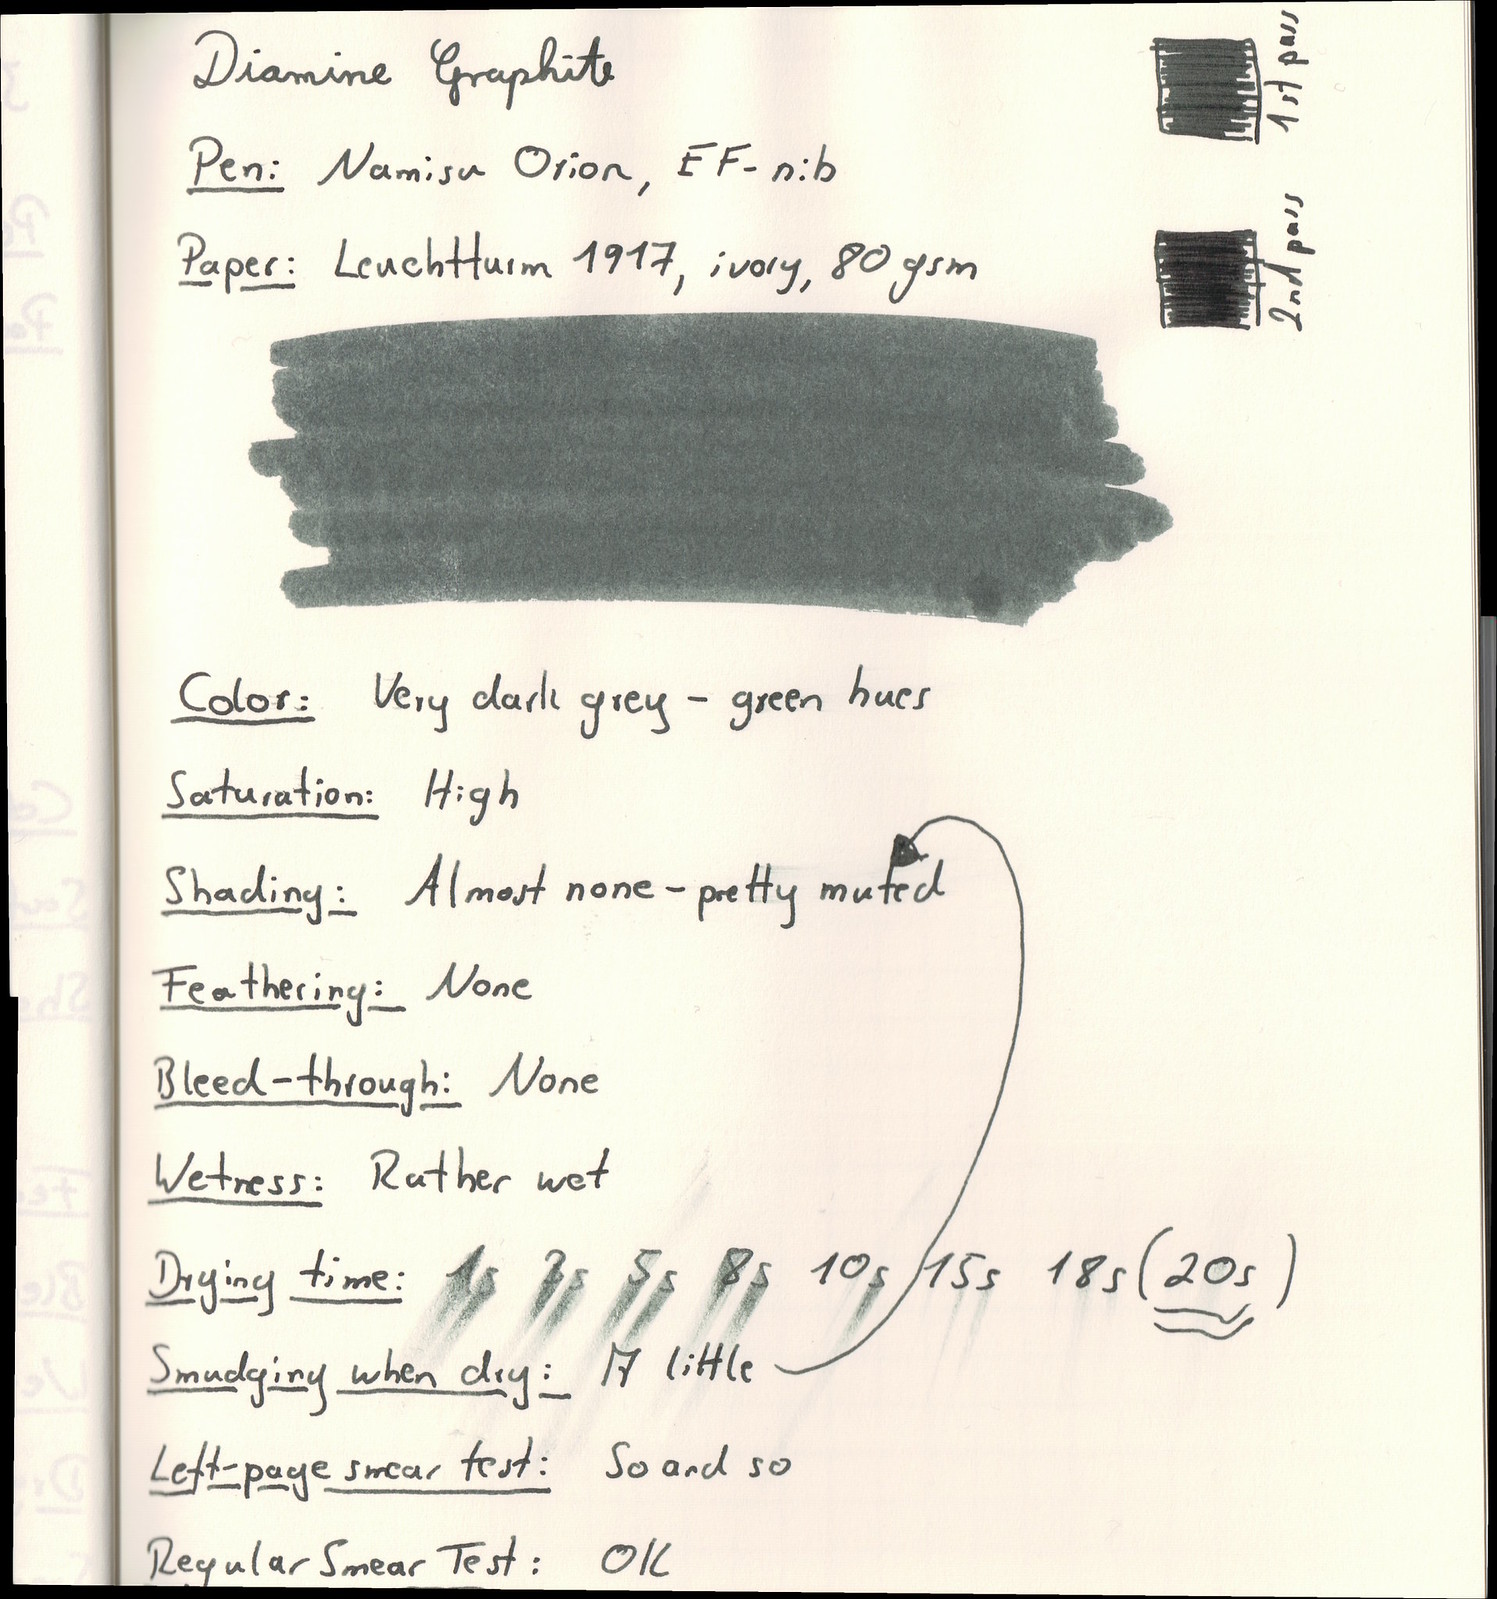 Diamine Graphite
1st pass
Pen: Namisu Orion, EF-nib
2nd pass
Paper: Leuchtturm 1917, ivory, 80 gsm
Color: Very dark grey - green hues
Saturation: High
Shading: Almost none - pretty muted
Feathering: None
Bleed-through: None
Wetness: Rather wet
Drying time: 1s 3s 5s 8s 10s 15s 18s (20s)
Smudging when dry: A little
Left-page smear test: So and so
Regular Smear Test: OK